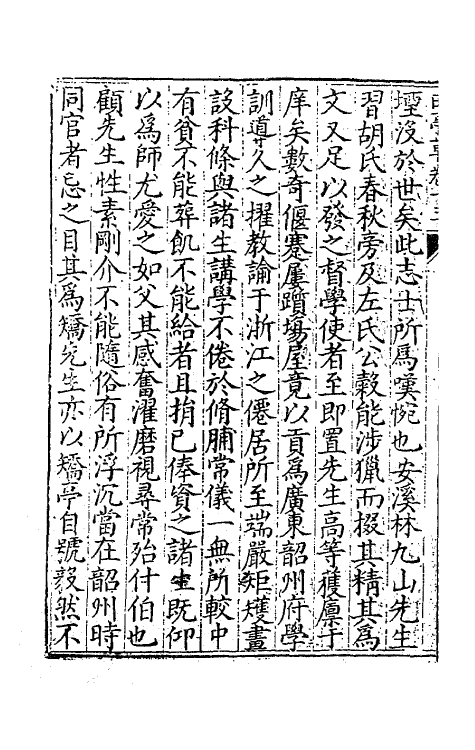 堙沒於世矣此志士所爲嘆惋也安溪林九山先生
習胡氏春秋旁及左氏公穀能涉獵而掇其精其爲
文又足以發之督學使者至即置先生高等獲廩于
庠矣數奇偃蹇屢躓場屋竟以貢爲廣東韶州府學
訓導久之擢教諭于浙江之僊居所至端嚴矩矱畫
設科條與諸生講學不倦於脩脯常儀一無所較中
有貧不能葬飢不能給者且捐己俸資之諸生既仰
以爲師尤愛之如父其感奮濯磨視尋常殆什伯也
顧先生性素剛介不能隨俗有所浮沉當在韶州時
同官者忌之目其爲矯先生亦以矯亭自號毅然不